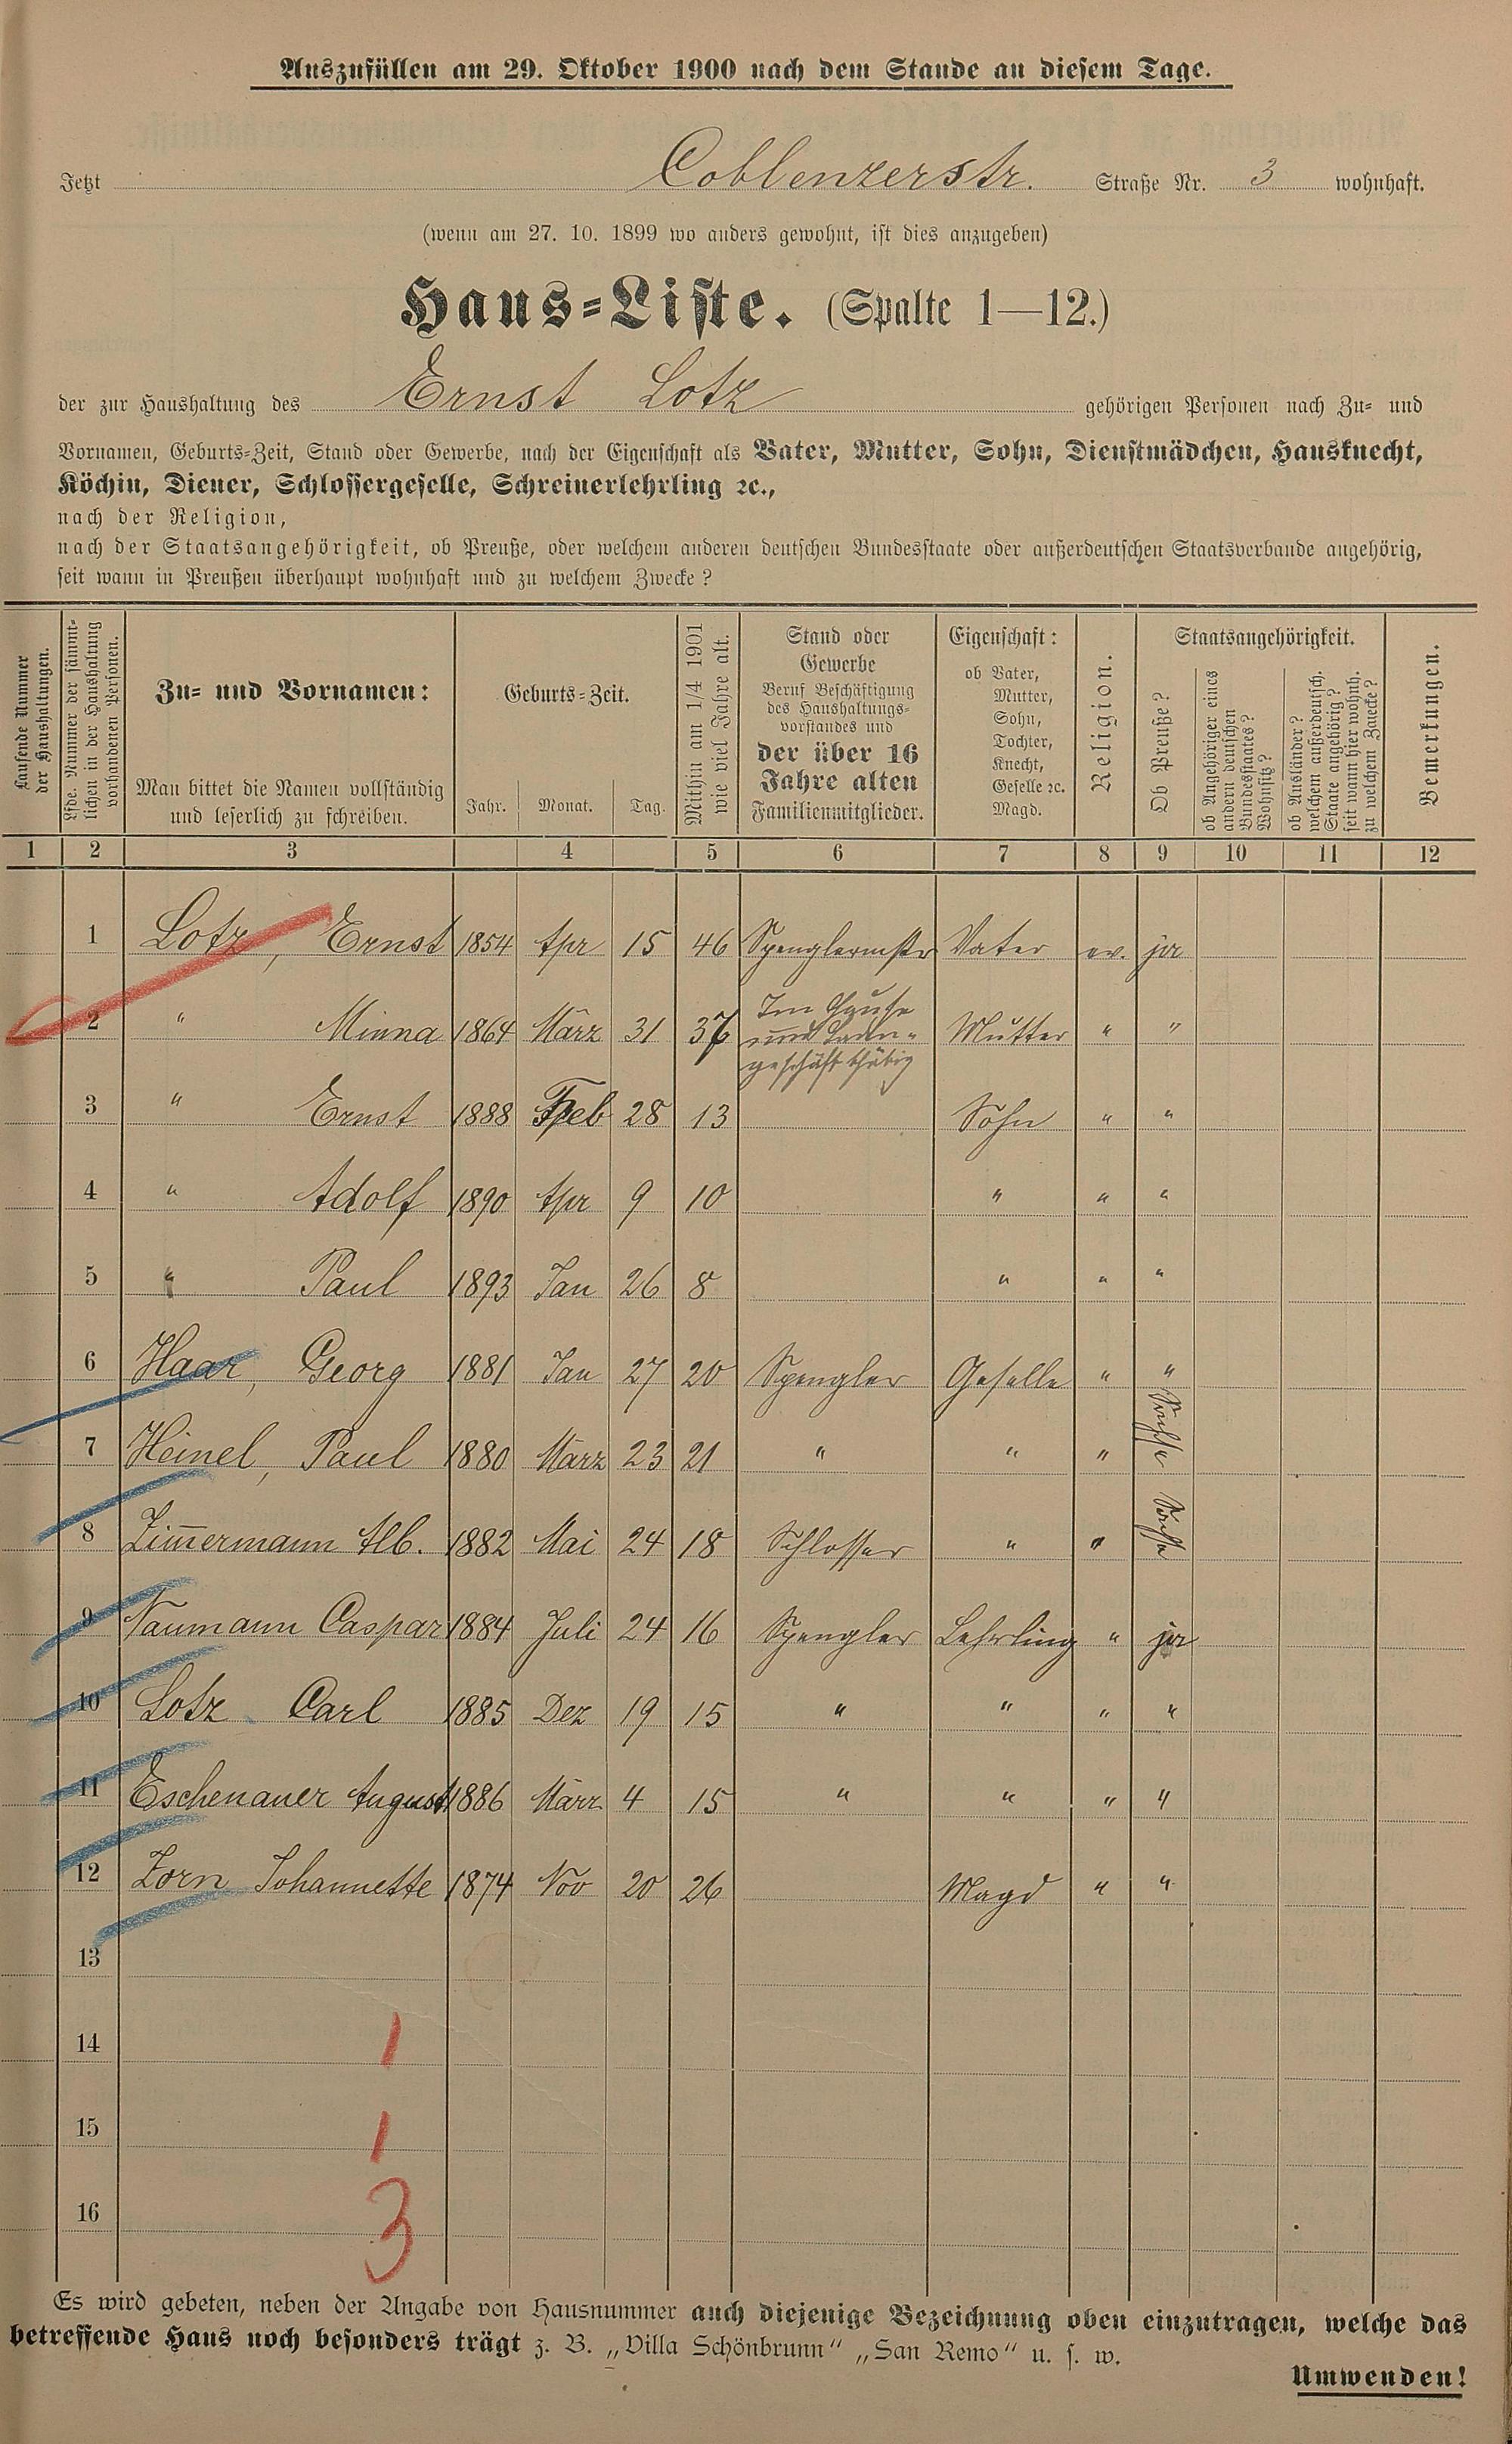 Auszufüllen am 29. Oktober 1900 nach dem Stande an diesem Tage.
Jetzt Coblenzerstr. Straße Nr. 3 wohnhaft.
(wenn am 27. 10. 1899 wo anders gewohnt, ist dies anzugeben)
Haus-Liste. (Spalte 1—12.)
der zur Haushaltung des Ernst Lotz gehörigen Personen nach Zu- und
Vornamen, Geburts-Zeit, Stand oder Gewerbe, nach der Eigenschaft als Vater, Mutter, Sohn, Dienstmädchen, Hausknecht,
Köchin, Diener, Schlossergeselle, Schreinerlehrling ꝛc.,
nach der Religion,
nach der Staatsangehörigkeit, ob Preuße, oder welchem anderen deutschen Bundesstaate oder außerdeutschen Staatsverbande angehörig,
seit wann in Preußen überhaupt wohnhaft und zu welchem Zwecke?
Laufende Nummer
der Haushaltungen.
Lfde. Nummer der sämmt-
lichen in der Haushaltung
vorhandenen Personen.
Zu- und Vornamen:
Man bittet die Namen vollständig
und leserlich zu schreiben.
Geburts-Zeit.
Jahr. Monat. Tag.
Mithin am 1/4 1901
wie viel Jahre alt.
Stand oder
Gewerbe
Beruf Beschäftigung
des Haushaltungs-
vorstandes und
der über 16
Jahre alten
Familienmitglieder.
Eigenschaft:
ob Vater,
Mutter,
Sohn,
Tochter,
Knecht,
Geselle ꝛc.
Magd.
Religion.
Staatsangehörigkeit.
Ob Preuße?
ob Angehöriger eines
andern deutschen
Bundesstaates?
Wohnsitz?
ob Ausländer?
welchem außerdeutsch.
Staate angehörig?
seit wann hier wohnh.
zu welchem Zwecke?
Bemerkungen.
1 2 3 4 5 6 7 8 9 10 11 12
1 Lotz, Ernst 1854 Apr 15 46 Spenglermstr Vater ev. ja
2 " Minna 1864 März 31 37 Im Hause und Laden-geschäft thätig Mutter " "
3 " Ernst 1888 Feb 28 13 Sohn " "
4 " Adolf 1890 Apr 9 10 " " "
5 " Paul 1893 Jan 26 8 " " "
6 Haar, Georg 1881 Jan 27 20 Spengler Geselle " "
7 Heinel, Paul 1880 März 23 21 " " " Sachse
8 Zim̄ermann Alb. 1882 Mai 24 18 Schlosser " " Sachse
9 Naumann Caspar 1884 Juli 24 16 Spengler Lehrling " ja
10 Lotz Carl 1885 Dez 19 15 " " " "
11 Eschenauer August 1886 März 4 15 " " " "
12 Zorn Johannette 1874 Nov 20 26 Magd " "
13
14 1
15 1
16 3
Es wird gebeten, neben der Angabe von Hausnummer auch diejenige Bezeichnung oben einzutragen, welche das
betreffende Haus noch besonders trägt z. B. „Villa Schönbrunn“ „San Remo“ u. s. w.
Umwenden!